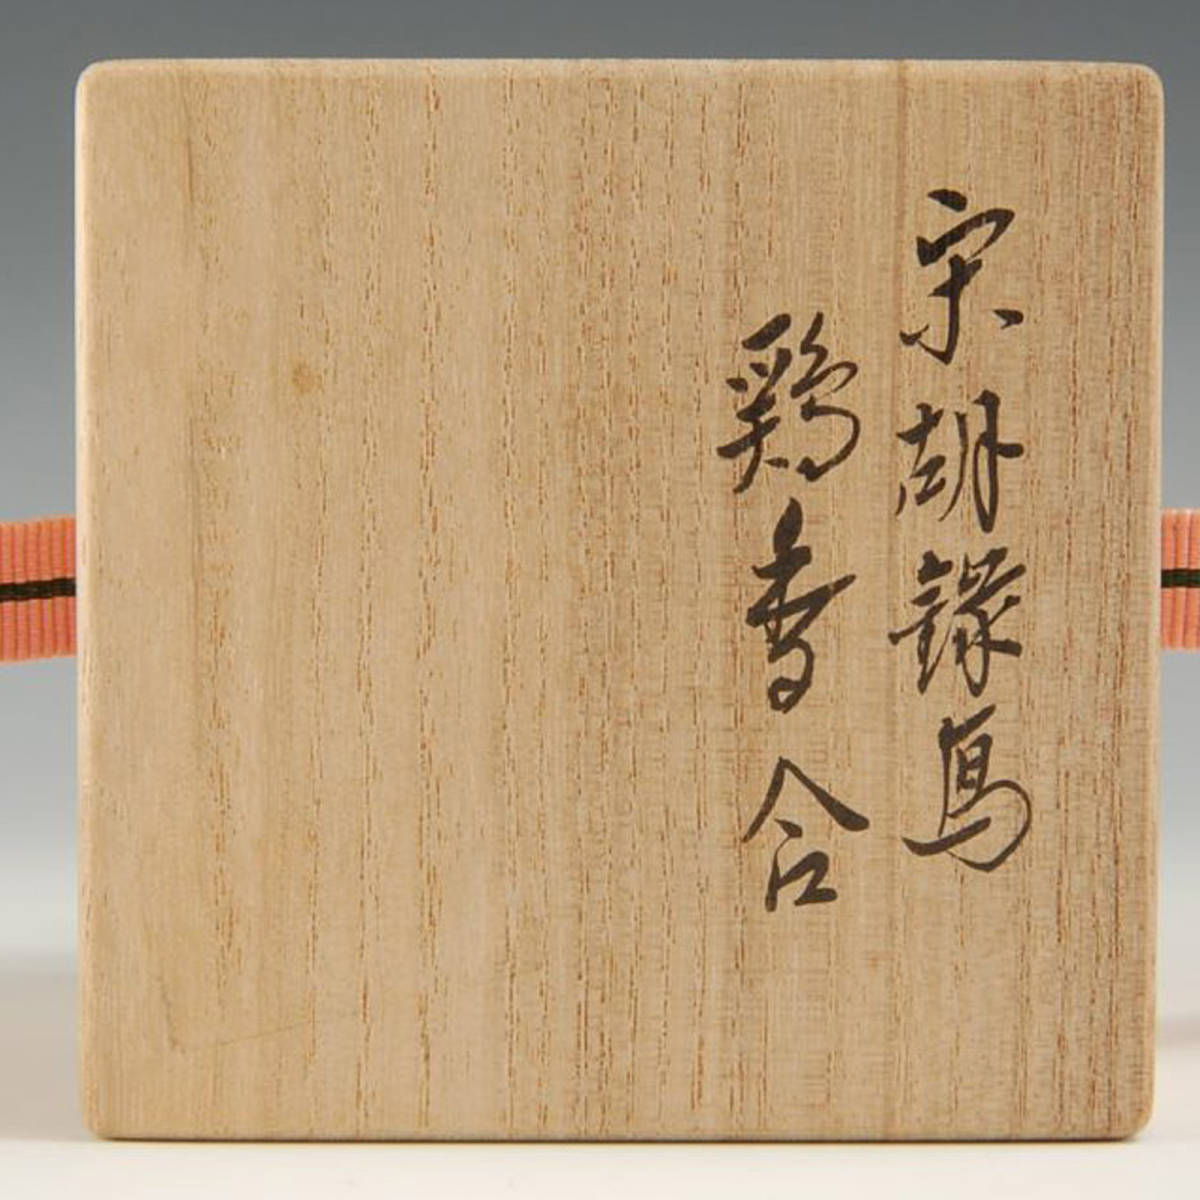 宋胡録寫
鶏香合